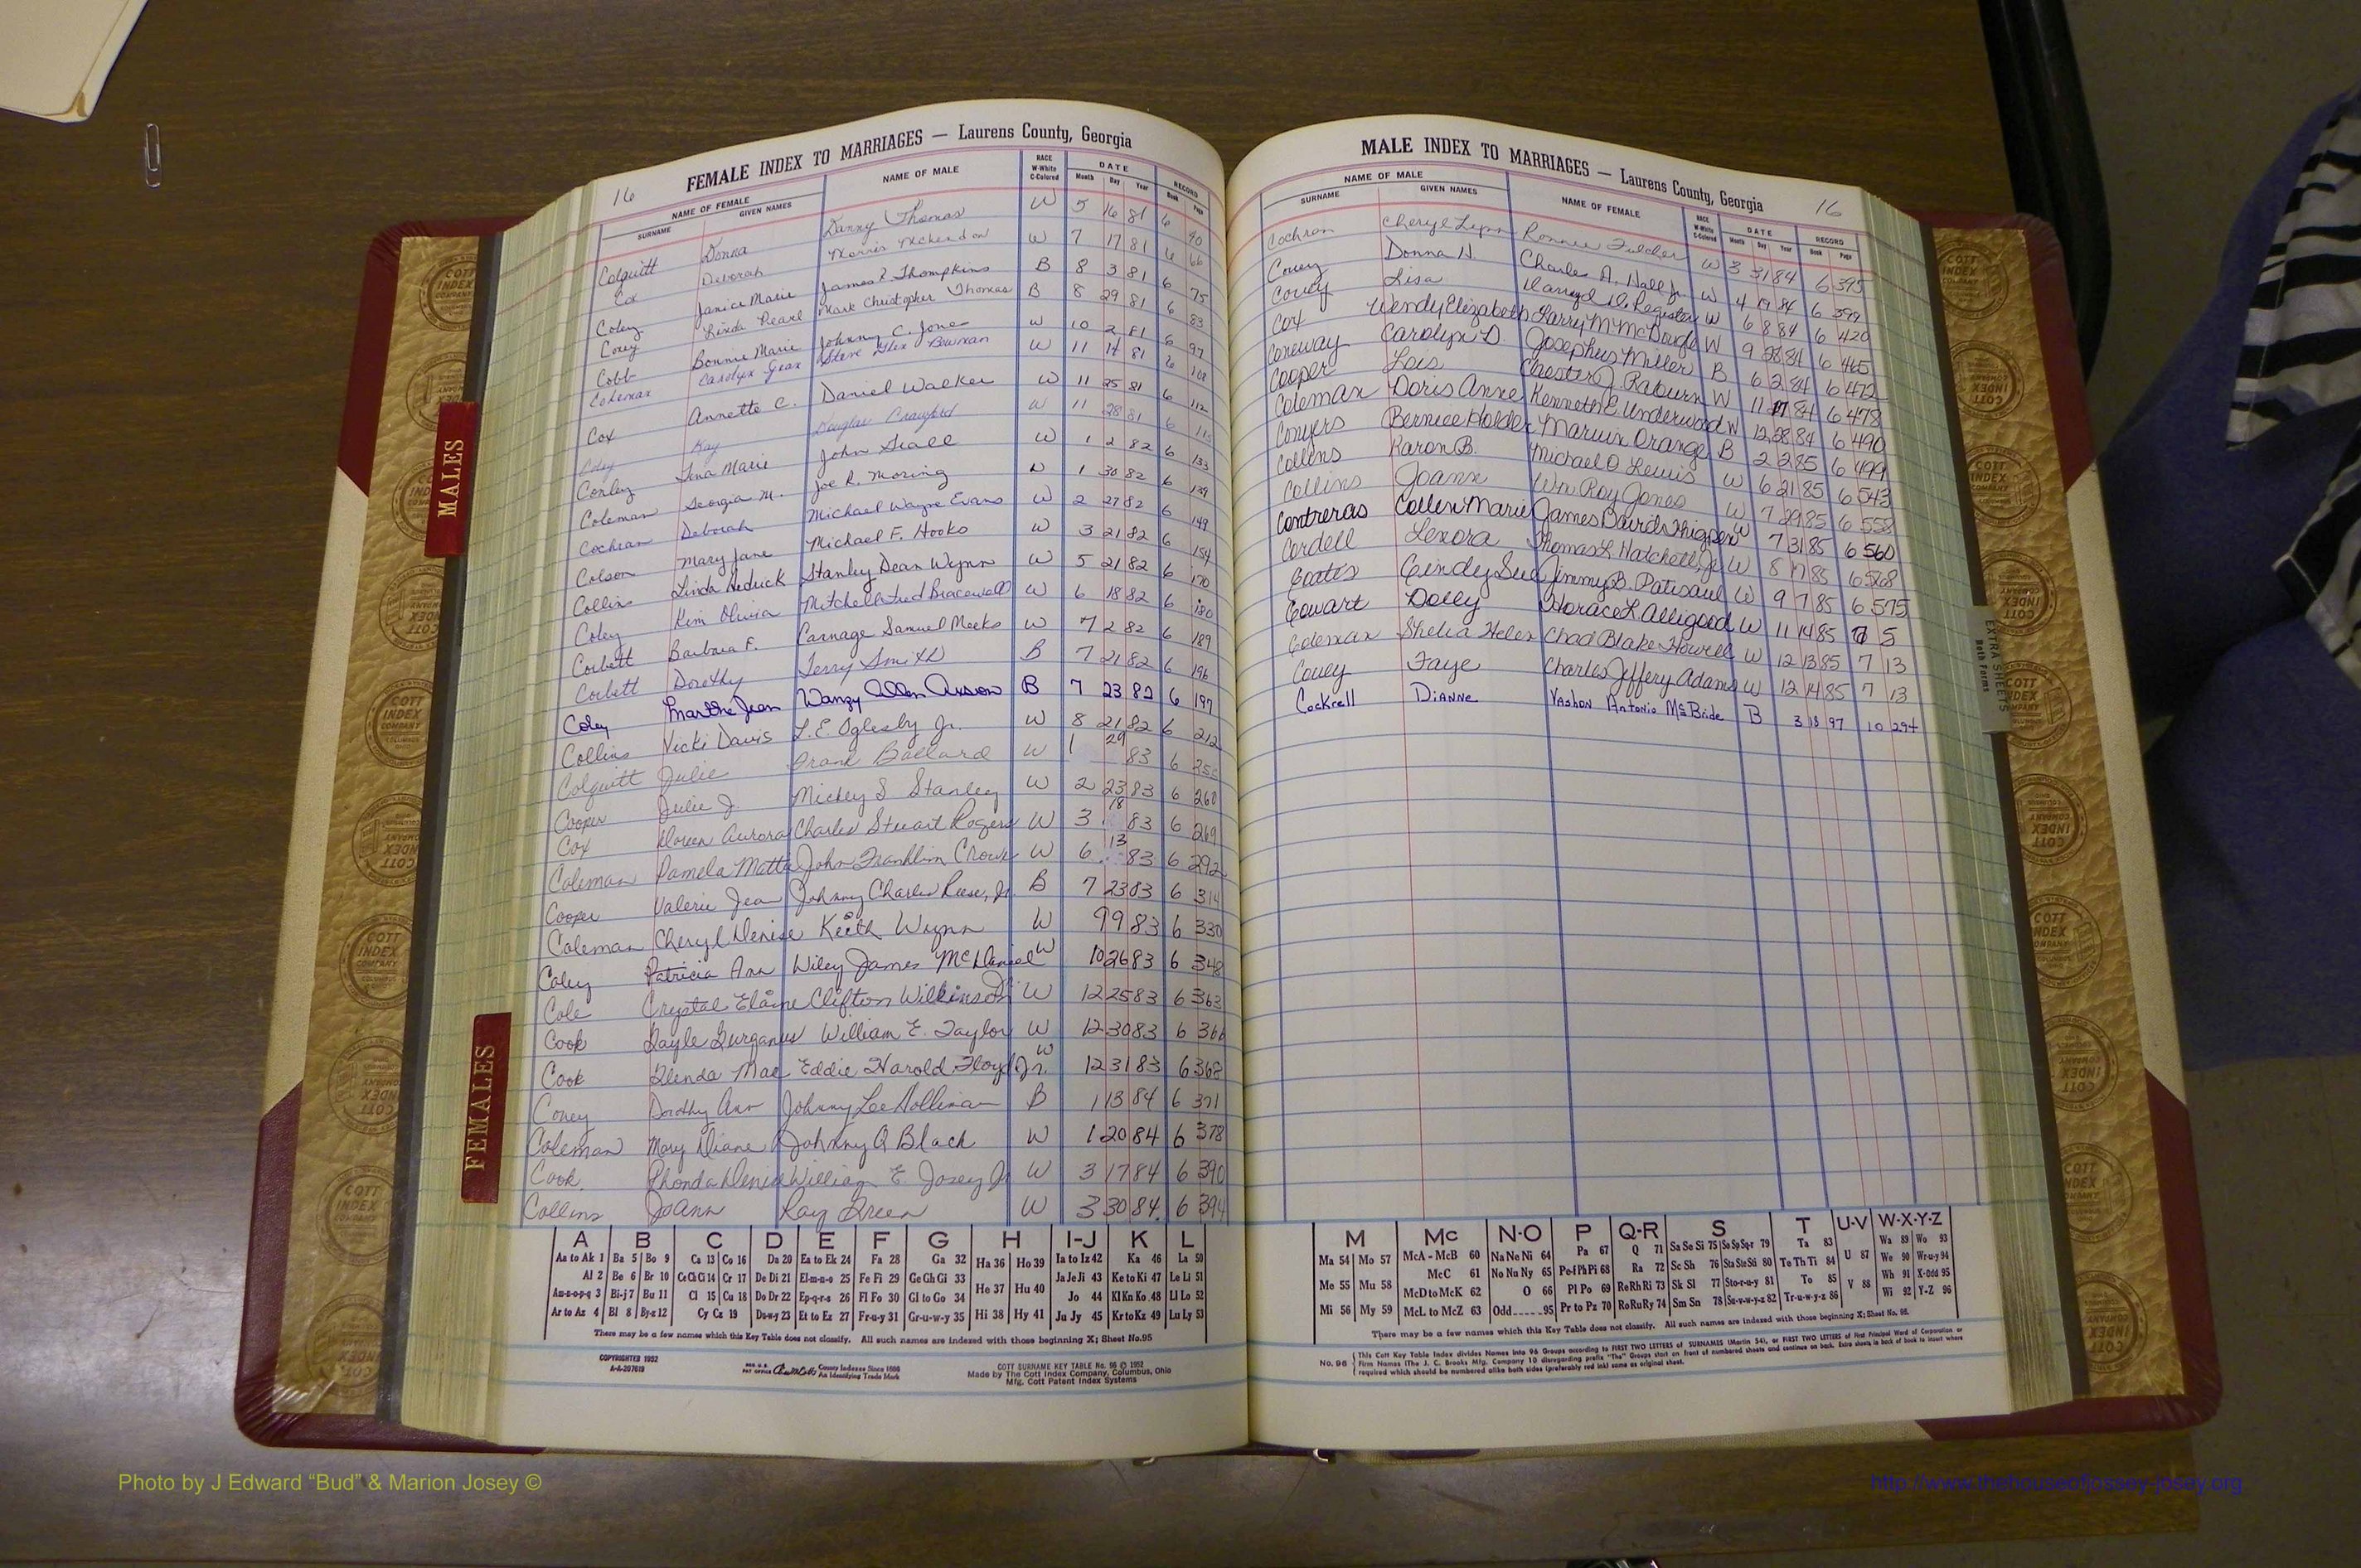 16
FEMALE INDEX TO MARRIAGES — Laurens County, Georgia
NAME OF FEMALE NAME OF MALE RACE W-White C-Colored DATE RECORD
SURNAME GIVEN NAMES Month Day Year Book Page
Colquitt Donna Danny Thomas W 5 16 81 6 40
Cox Deborah Morris McLendon W 7 17 81 6 66
Coley Janice Marie James E. Thompkins B 8 3 81 6 75
Coney Linda Pearl Mark Christopher Thomas B 8 29 81 6 83
Cobb Bonnie Marie Johnny C. Jones W 10 2 81 6 97
Coleman Carolyn Jean Steve Alex Bowman W 11 14 81 6 108
Cox Annette C. Daniel Walker W 11 25 81 6 112
Coley Kay Douglas Crawford W 11 28 81 6
Conley Tina Marie John W 1 2 82 6 133
Coleman Georgia M. Joe R. Moring W 1 30 82 6 139
Cochran Deborah Michael Wayne Evans W 2 27 82 6 149
Colson Mary Jane Michael F. Hooks W 3 21 82 6 154
Collins Linda Hedrick Stanley Dean Wynn W 5 21 82 6 170
Coley Kim Olivia Mitchell Fred Bracewell W 6 18 82 6 180
Corbett Barbara F. Carnage Samuel Meeks W 7 2 82 6 189
Corbett Dorothy Terry Smith B 7 21 82 6 196
Coley Martha Jean Wanzy Allen B 7 23 82 6 197
Collins Vicki Davis L.E. Oglesby Jr. W 8 21 82 6 212
Colquitt Julie Frank Ballard W 1 29 83 6
Cooper Julie J. Mickey S Stanley W 2 23 83 6 260
Cox Doreen Aurora Charles Stuart Rogers W 3 18 83 6 269
Coleman Pamela Matta John Franklin Crowe W 6 13 83 6 292
Cooper Valerie Jean Johnny Charles Reese, Jr. B 7 23 83 6 314
Coleman Cheryl Denise Keith Wynn W 9 9 83 6 330
Coley Patricia Ann Wiley James McDaniel W 10 26 83 6 348
Cole Crystal Elaine Clifton Wilkinson W 12 25 83 6 363
Cook Gayle Gurganus William E. Taylor W 12 30 83 6 366
Cook Glenda Mae Eddie Harold Floyd Jr. W 12 31 83 6 368
Coney Dorothy Ann Johnny Lee Holliman B 1 13 84 6 371
Coleman Mary Diane Johnny Q Black W 1 20 84 6 378
Cook Rhonda Denise William E. Josey Jr W 3 17 84 6 390
Collins JoAnn Ray Green W 3 30 84 6 394
A B C D E F G H I-J K L
Aa to Ak 1 Ba 5 Bo 9 Ca 13 Co 16 Da 20 Ea to Ek 24 Fa 28 Ga 32 Ha 36 Ho 39 Ia to Iz 42 Ka 46 La 50
Al 2 Be 6 Br 10 Ce Ch Ci 14 Cr 17 De Di 21 El-m-n-o 25 Fe Fi 29 Ge Gh Gi 33 Ja Je Ji 43 Ke to Ki 47 Le Li 51
Am-n-o-p-q 3 Bi-j 7 Bu 11 Cl 15 Cu 18 Do Dr 22 Ep-q-r-s 26 Fl Fo 30 Gl to Go 34 He 37 Hu 40 Jo 44 Kl Kn Ko 48 Ll Lo 52
Ar to Az 4 Bl 8 By-z 12 Cy Cz 19 Du-w-y 23 Et to Ez 27 Fr-u-y 31 Gr-u-w-y 35 Hi 38 Hy 41 Ju Jy 45 Kr to Kz 49 Lu Ly 53
There may be a few names which this Key Table does not classify. All such names are indexed with those beginning X; Sheet No. 95
COPYRIGHTED 1952
A-A-207619
REG. U.S. PAT OFFICE County Indexes Since 1888
An Identifying Trade Mark
COTT SURNAME KEY TABLE No. 96 © 1952
Made by The Cott Index Company, Columbus, Ohio
Mfg. Cott Patent Index Systems
MALE INDEX TO MARRIAGES — Laurens County, Georgia
16
NAME OF MALE NAME OF FEMALE RACE W-White C-Colored DATE RECORD
SURNAME GIVEN NAMES Month Day Year Book Page
Cochran Cheryl Lynn Ronnie Fulcher W 3 31 84 6 395
Covey Donna N. Charles A. Hall Jr. W 4 19 84 6 399
Covey Lisa Darryl D. Register W 6 8 84 6 420
Cox Wendy Elizabeth Larry M McDougle W 9 28 84 6 465
Coneway Carolyn D. Josephus Miller B 6 2 84 6 472
Cooper Lois Chester J. Raburn W 11 17 84 6 478
Coleman Doris Anne Kenneth E. Underwood W 12 28 84 6 490
Conyers Bernice Holder Marvin Orange B 2 2 85 6 499
Collins Karon B. Michael O. Lewis W 6 21 85 6 543
Collins Joann Wm Roy Jones W 7 29 85 6 558
Contreras Collen Marie James David Thigpen W 7 31 85 6 560
Cordell Lexora Thomas L Hatchell, Jr W 8 17 85 6 568
Coats Cindy Sue Jimmy B. Patisaul W 9 7 85 6 575
Cowart Dolly Horace L Alligood W 11 14 85 7 5
Coleman Shelia Helen Chad Blake Howell W 12 13 85 7 13
Covey Faye Charles Jeffery Adams W 12 14 85 7 13
Cockrell Dianne Vashon Antonio McBride B 3 18 97 10 294
M Mc N-O P Q-R S T U-V W-X-Y-Z
Ma 54 Mo 57 McA - McB 60 Na Ne Ni 64 Pa 67 Q 71 Sa Se Si 75 So Sp Sq-r 79 Ta 83 Wa 89 Wo 93
McC 61 No Nu Ny 65 Pe-f Ph Pi 68 Ra 72 Sc Sh 76 Sta Ste Sti 80 Te Th Ti 84 U 87 We 90 Wr-u-y 94
Me 55 Mu 58 McD to McK 62 O 66 Pl Po 69 Re Rh Ri 73 Sk Sl 77 Sto-r-u-y 81 To 85 Wh 91 X-Odd 95
Mi 56 My 59 McL to McZ 63 Odd 95 Pr to Pz 70 Ro Ru Ry 74 Sm Sn 78 Su-v-w-y-z 82 Tr-u-w-y-z 86 V 88 Wi 92 Y-Z 96
There may be a few names which this Key Table does not classify. All such names are indexed with those beginning X; Sheet No. 95.
No. 96 This Cott Key Table Index divides Names into 96 Groups according to FIRST TWO LETTERS of SURNAMES (Martin 54), or FIRST TWO LETTERS of First Principal Word of Corporation or
Firm Names (The J. C. Brooks Mfg. Company 10 disregarding prefix "The" Groups start on front of numbered sheets and continue on back. Extra sheets in back of book to insert where
required which should be numbered alike both sides (preferably red ink) same as original sheet.
MALES
FEMALES
EXTRA SHEETS
Both Forms
COTT INDEX COMPANY COLUMBUS, OHIO
Photo by J Edward “Bud” & Marion Josey ©
http://www.thehouseofjossey-josey.org